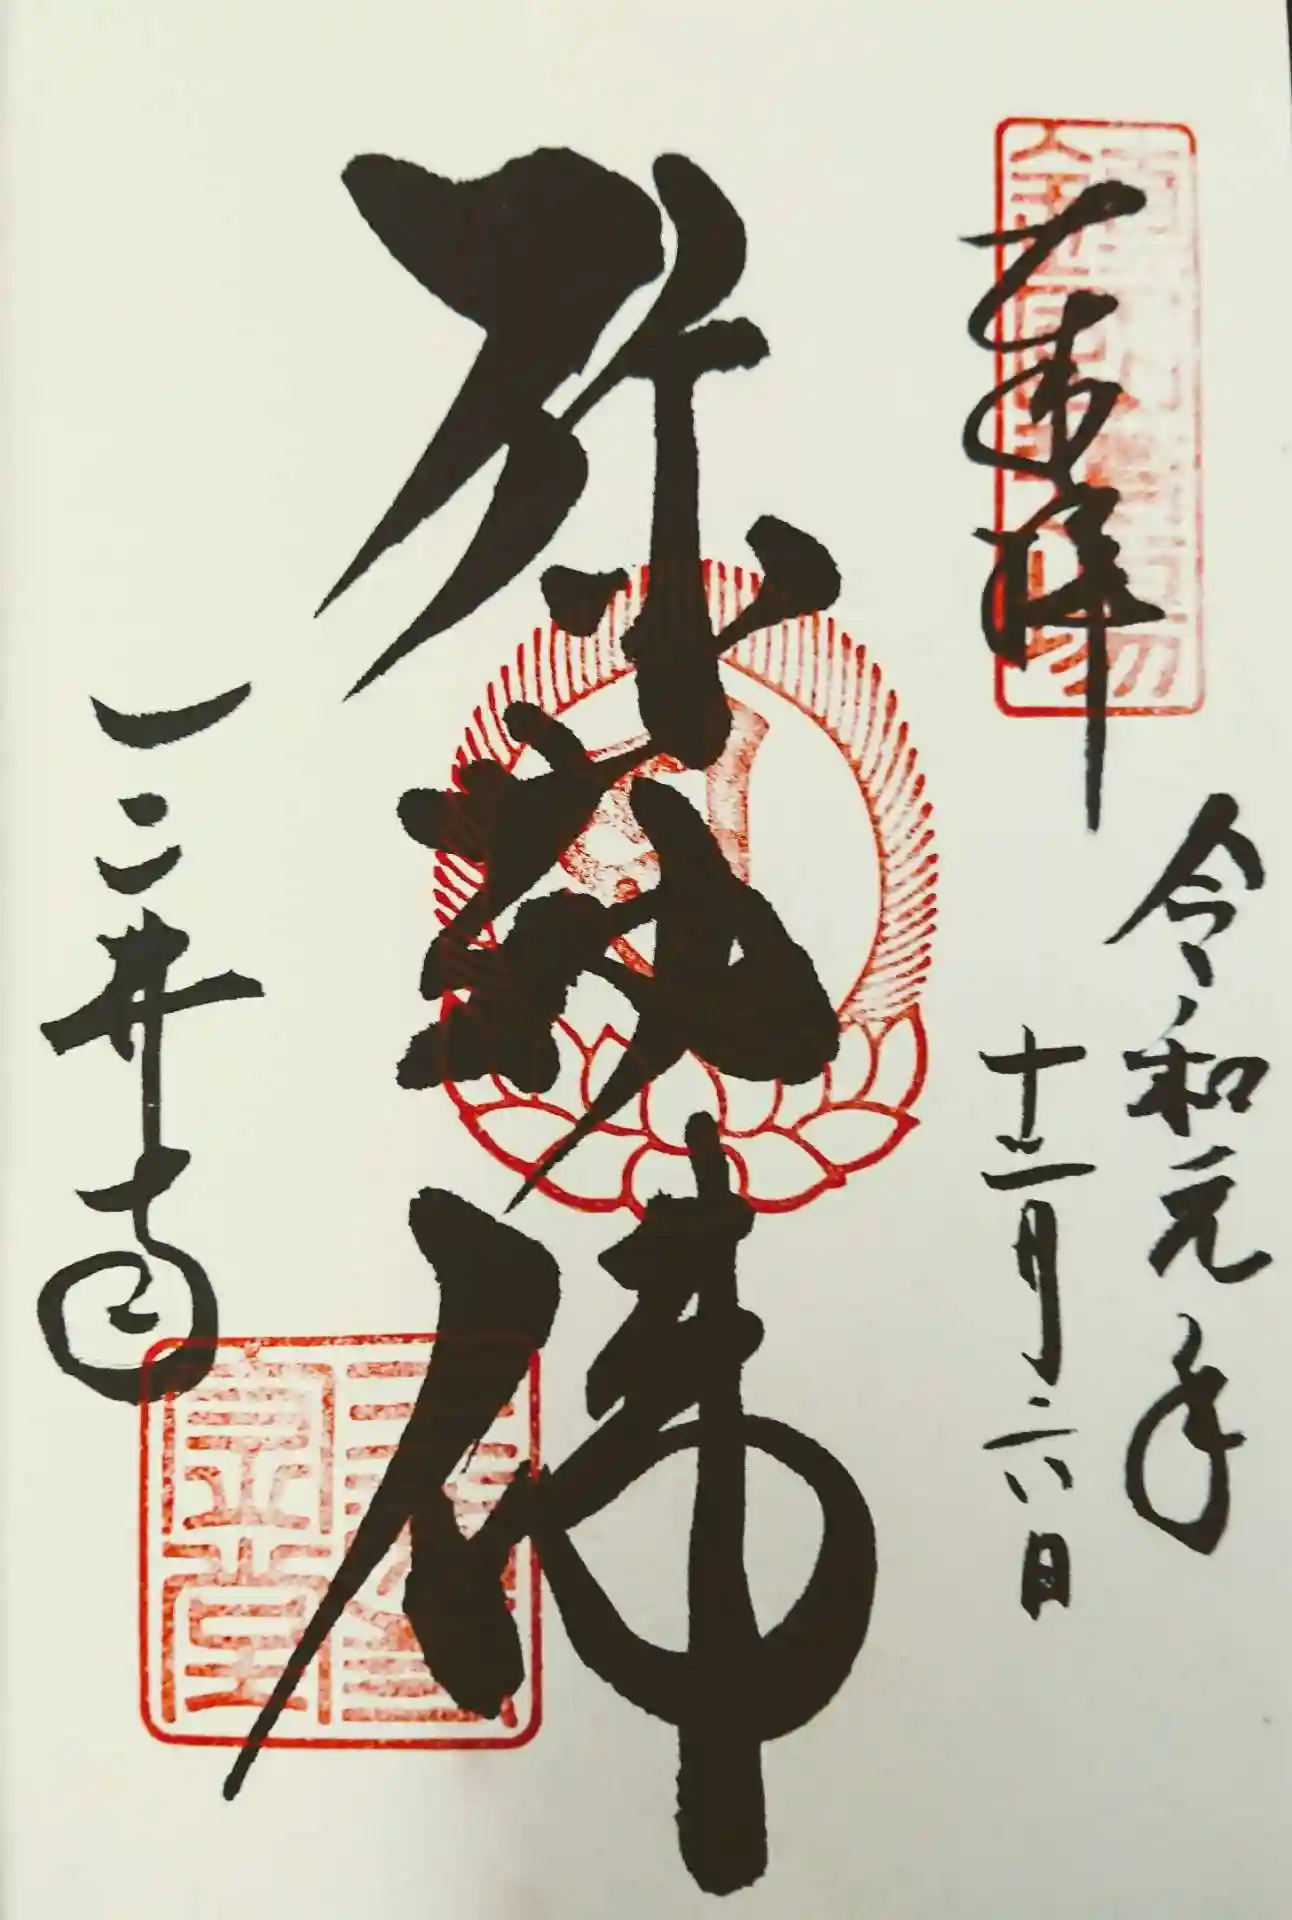 奉拝
令和元年
十二月六日
弥勒佛
三井寺
金堂